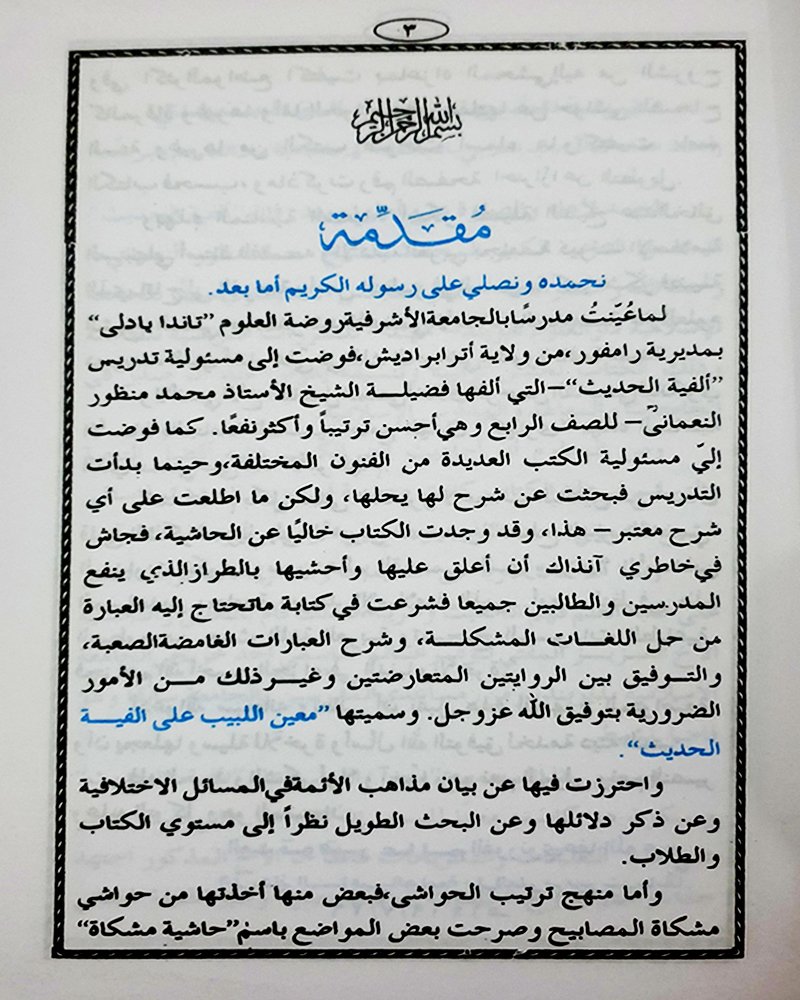 ٣
بسم الله الرحمن الرحيم
مُقَدِّمة
نحمده ونصلي على رسوله الكريم أما بعد.
لما عُيّنتُ مدرسًا بالجامعة الأشرفية روضة العلوم "تاندا بادلى"
بمديرية رامفور، من ولاية أترابراديش، فوضت إلى مسئولية تدريس
"ألفية الحديث" – التي ألفها فضيلة الشيخ الأستاذ محمد منظور
النعمانىؒ – للصف الرابع وهي أحسن ترتيباً وأكثر نفعًا. كما فوضت
إليّ مسئولية الكتب العديدة من الفنون المختلفة، وحينما بدأت
التدريس فبحثت عن شرح لها يحلها، ولكن ما اطلعت على أي
شرح معتبر – هذا، وقد وجدت الكتاب خاليًا عن الحاشية، فجاش
في خاطري آنذاك أن أعلق عليها وأحشيها بالطراز الذي ينفع
المدرسين والطالبين جميعا فشرعت في كتابة ماتحتاج إليه العبارة
من حل اللغات المشكلة، وشرح العبارات الغامضة الصعبة،
والتوفيق بين الروايتين المتعارضتين وغير ذلك من الأمور
الضرورية بتوفيق الله عزوجل. وسميتها "معين اللبيب على الفية
الحديث".
واحترزت فيها عن بيان مذاهب الأئمة في المسائل الاختلافية
وعن ذكر دلائلها وعن البحث الطويل نظراً إلى مستوي الكتاب
والطلاب.
وأما منهج ترتيب الحواشى، فبعض منها أخذتها من حواشي
مشكاة المصابيح وصرحت بعض المواضع باسم "حاشية مشكاة"